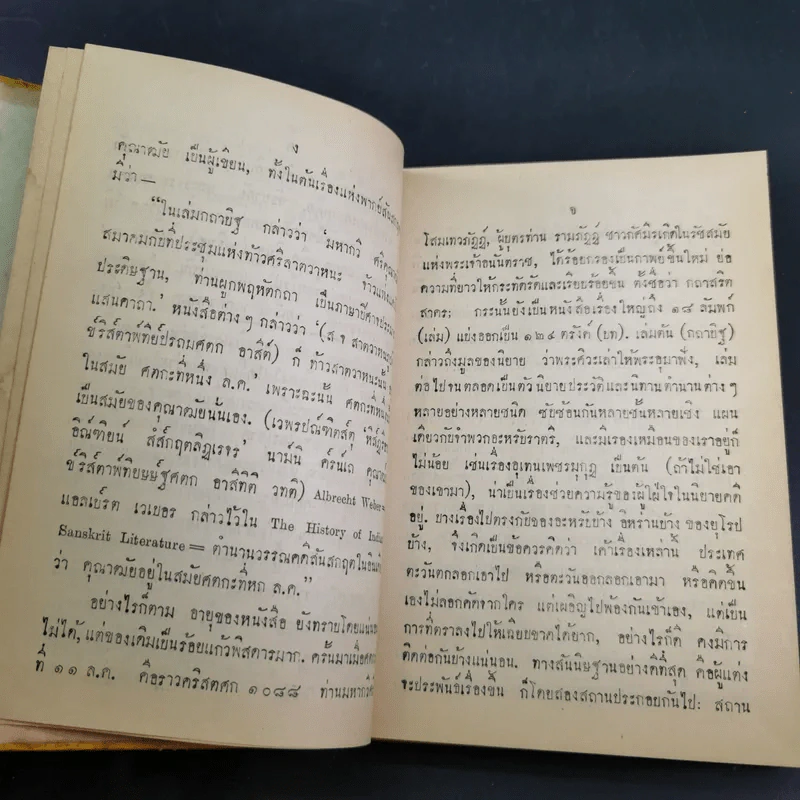 ง
คุณาฒมัย เป็นผู้เขียน, ทั้งในต้นเรื่องแห่งพากย์
มีว่า—
“ในเล่มกถายิฐ กล่าวว่า ‘มหากวี
สมาคมกับที่ประชุมแห่งท้าวศรีลาตวาหนะ
ประดิษฐาน, ท่านผูกพฤหัตกถา เป็นภาษาปีศาจ
แสนคาถา.’ หนังสือต่างๆ กล่าวว่า ‘(ส ง สาตวาหน
ขํริสํตาพํทีย์ปํรถมศตก อาสีต์) ก็ ท้าวสาตวาหนะนั้น
ในสมัย ศตกะที่หนึ่ง ล.ค.’ เพราะฉะนั้น ศตกะที่หนึ่ง
เป็นสมัยของคุณาฒมัยนั้นเอง. (เวพรปณํฑิตสํตุ
อิณํฑิยนํ สํสํกฤตลิฏเรจรํ นามํนิ คํรนํเถ
ขํริสํตาพํทียษษํฐศตก อาสีทิติ วทติ) Albrecht Weber=
แอลเบร์ต เวเบอร กล่าวไว้ใน The History of
Sanskrit Literature= ตำนานวรรณคดีสันสกฤต
ว่า คุณาฒมัยอยู่ในสมัยศตกะที่หก ล.ค.”
อย่างไรก็ตาม อายุของหนังสือ ยังทราบโดย
ไม่ได้, แต่ของเดิมเป็นร้อยแก้วพิสดารมาก. ครั้นมาเมื่อ
ที่ ๑๑ ล.ค. คือราวคริสตศก ๑๐๘๘ ท่านมหากวี
จ
โสมเทวภัฏฏ์, ผู้บุตรท่าน รามภัฏฏ์ ชาวกัศมิรเกิดในรัชสมัย
แห่งพระเจ้าอนันตราช, ได้ร้อยกรองเป็นกาพย์ขึ้นใหม่ ย่อ
ความที่ยาวให้กระทัดรัดและเรียบร้อยขึ้น ตั้งชื่อว่า กถาสริต
สาคร; กระนั้นยังเป็นหนังสือเรื่องใหญ่ถึง ๑๘ ลัมพก์
(เล่ม) แบ่งออกเป็น ๑๒๔ ตรังค์ (บท). เล่มต้น (กถายิฐ)
กล่าวถึงมูลของนิยาย ว่าพระศิวะเล่าให้พระอุมาฟัง, เล่ม
ต่อไปจนตลอดเป็นตัวนิยายประวัติและนิทานตำนานต่างๆ
หลายอย่างหลายชนิด ซับซ้อนกันหลายชั้นหลายเชิง แผน
เดียวกับจำพวกอะหรับราตรี, และมีเรื่องเหมือนของเราอยู่ก็
ไม่น้อย เช่นเรื่องอุเทนเพชรมุกุฏ เป็นต้น (ถ้าไม่ใช่เอา
ของเขามา), น่าเป็นเรื่องช่วยความรู้ของผู้ใฝ่ใจในนิยายคดี
อยู่. บางเรื่องไปตรงกับของอะหรับบ้าง อิหร่านบ้าง ของยุโรป
บ้าง, จึงเกิดเป็นข้อควรคิดว่า เค้าเรื่องเหล่านี้ ประเทศ
ตะวันตกลอกเอาไป หรือตะวันออกลอกเอามา หรือคิดขึ้น
เองไม่ลอกคัดจากใคร แต่เผอิญไปพ้องกันเข้าเอง, แต่เป็น
การที่ตราลงไปให้เฉียบขาดได้ยาก, อย่างไรก็ดี คงมีการ
ติดต่อกันบ้างแน่นอน. ทางสันนิษฐานอย่างดีที่สุด คือผู้แต่ง
จะประพันธ์เรื่องขึ้น ก็โดยสองสถานประกอบกันไป: สถาน